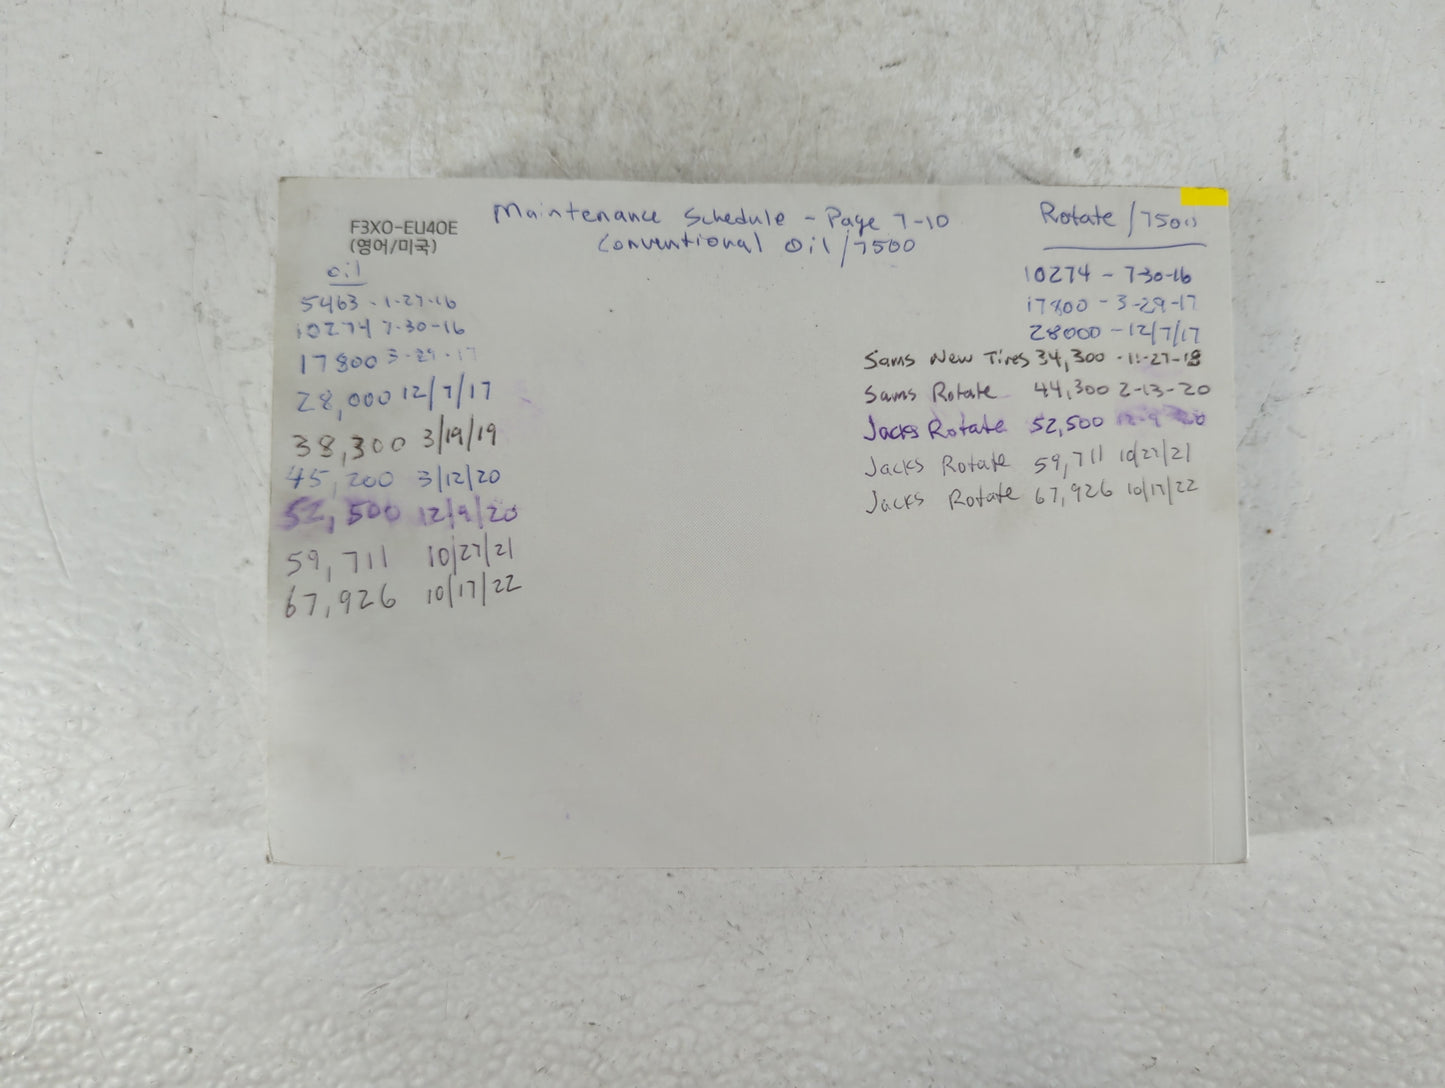 F3XO-EU4OE
(영어/미국)
Maintenance Schedule - Page 7-10
Conventional Oil/7500
oil
5463 - 1-27-16
10274 7-30-16
17800 3-29-17
28,000 12/7/17
38,300 3/19/19
45,200 3/12/20
52,500 12/9/20
59,711 10/27/21
67,926 10/17/22
Rotate/7500
10274 - 7-30-16
17800 - 3-29-17
28000 - 12/7/17
Sams New Tires 34,300 - 11-27-18
Sams Rotate 44,300 2-13-20
Jacks Rotate 52,500 12-9-20
Jacks Rotate 59,711 10/27/21
Jacks Rotate 67,926 10/17/22